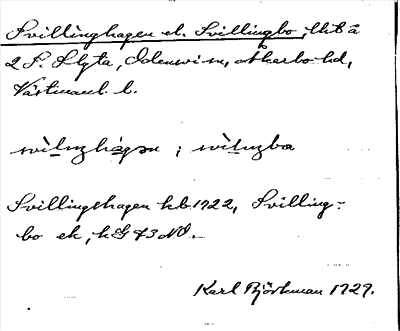 Svillinghagen el. Svillingbo, lht å
2 S. Slyta, Odensvi sn, Åkerbo hd,
Västmanl. l.
svìlıŋhágən ; svìlıŋbo
Svillingshagen kb 1722, Svilling-
bo ek, hG 43 NO.
Karl Björkman 1929.